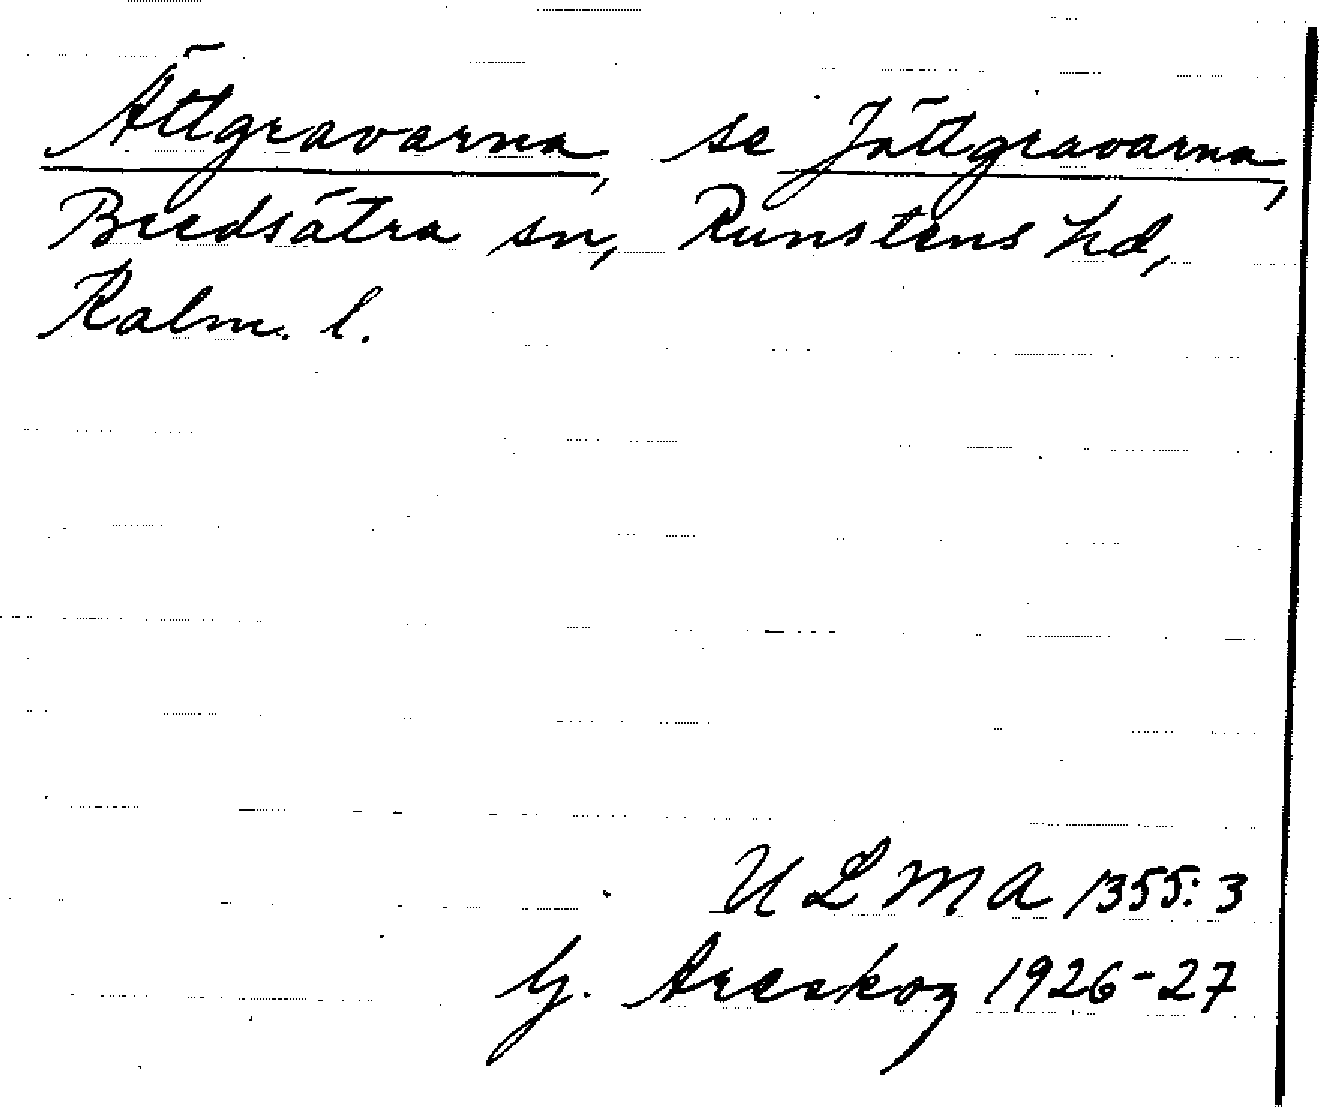 Ättgravarna, se Jättgravarna,
Bredsätra sn, Runstens hd,
Kalm. l.
ULMA 1355:3
G. Areskog 1926-27